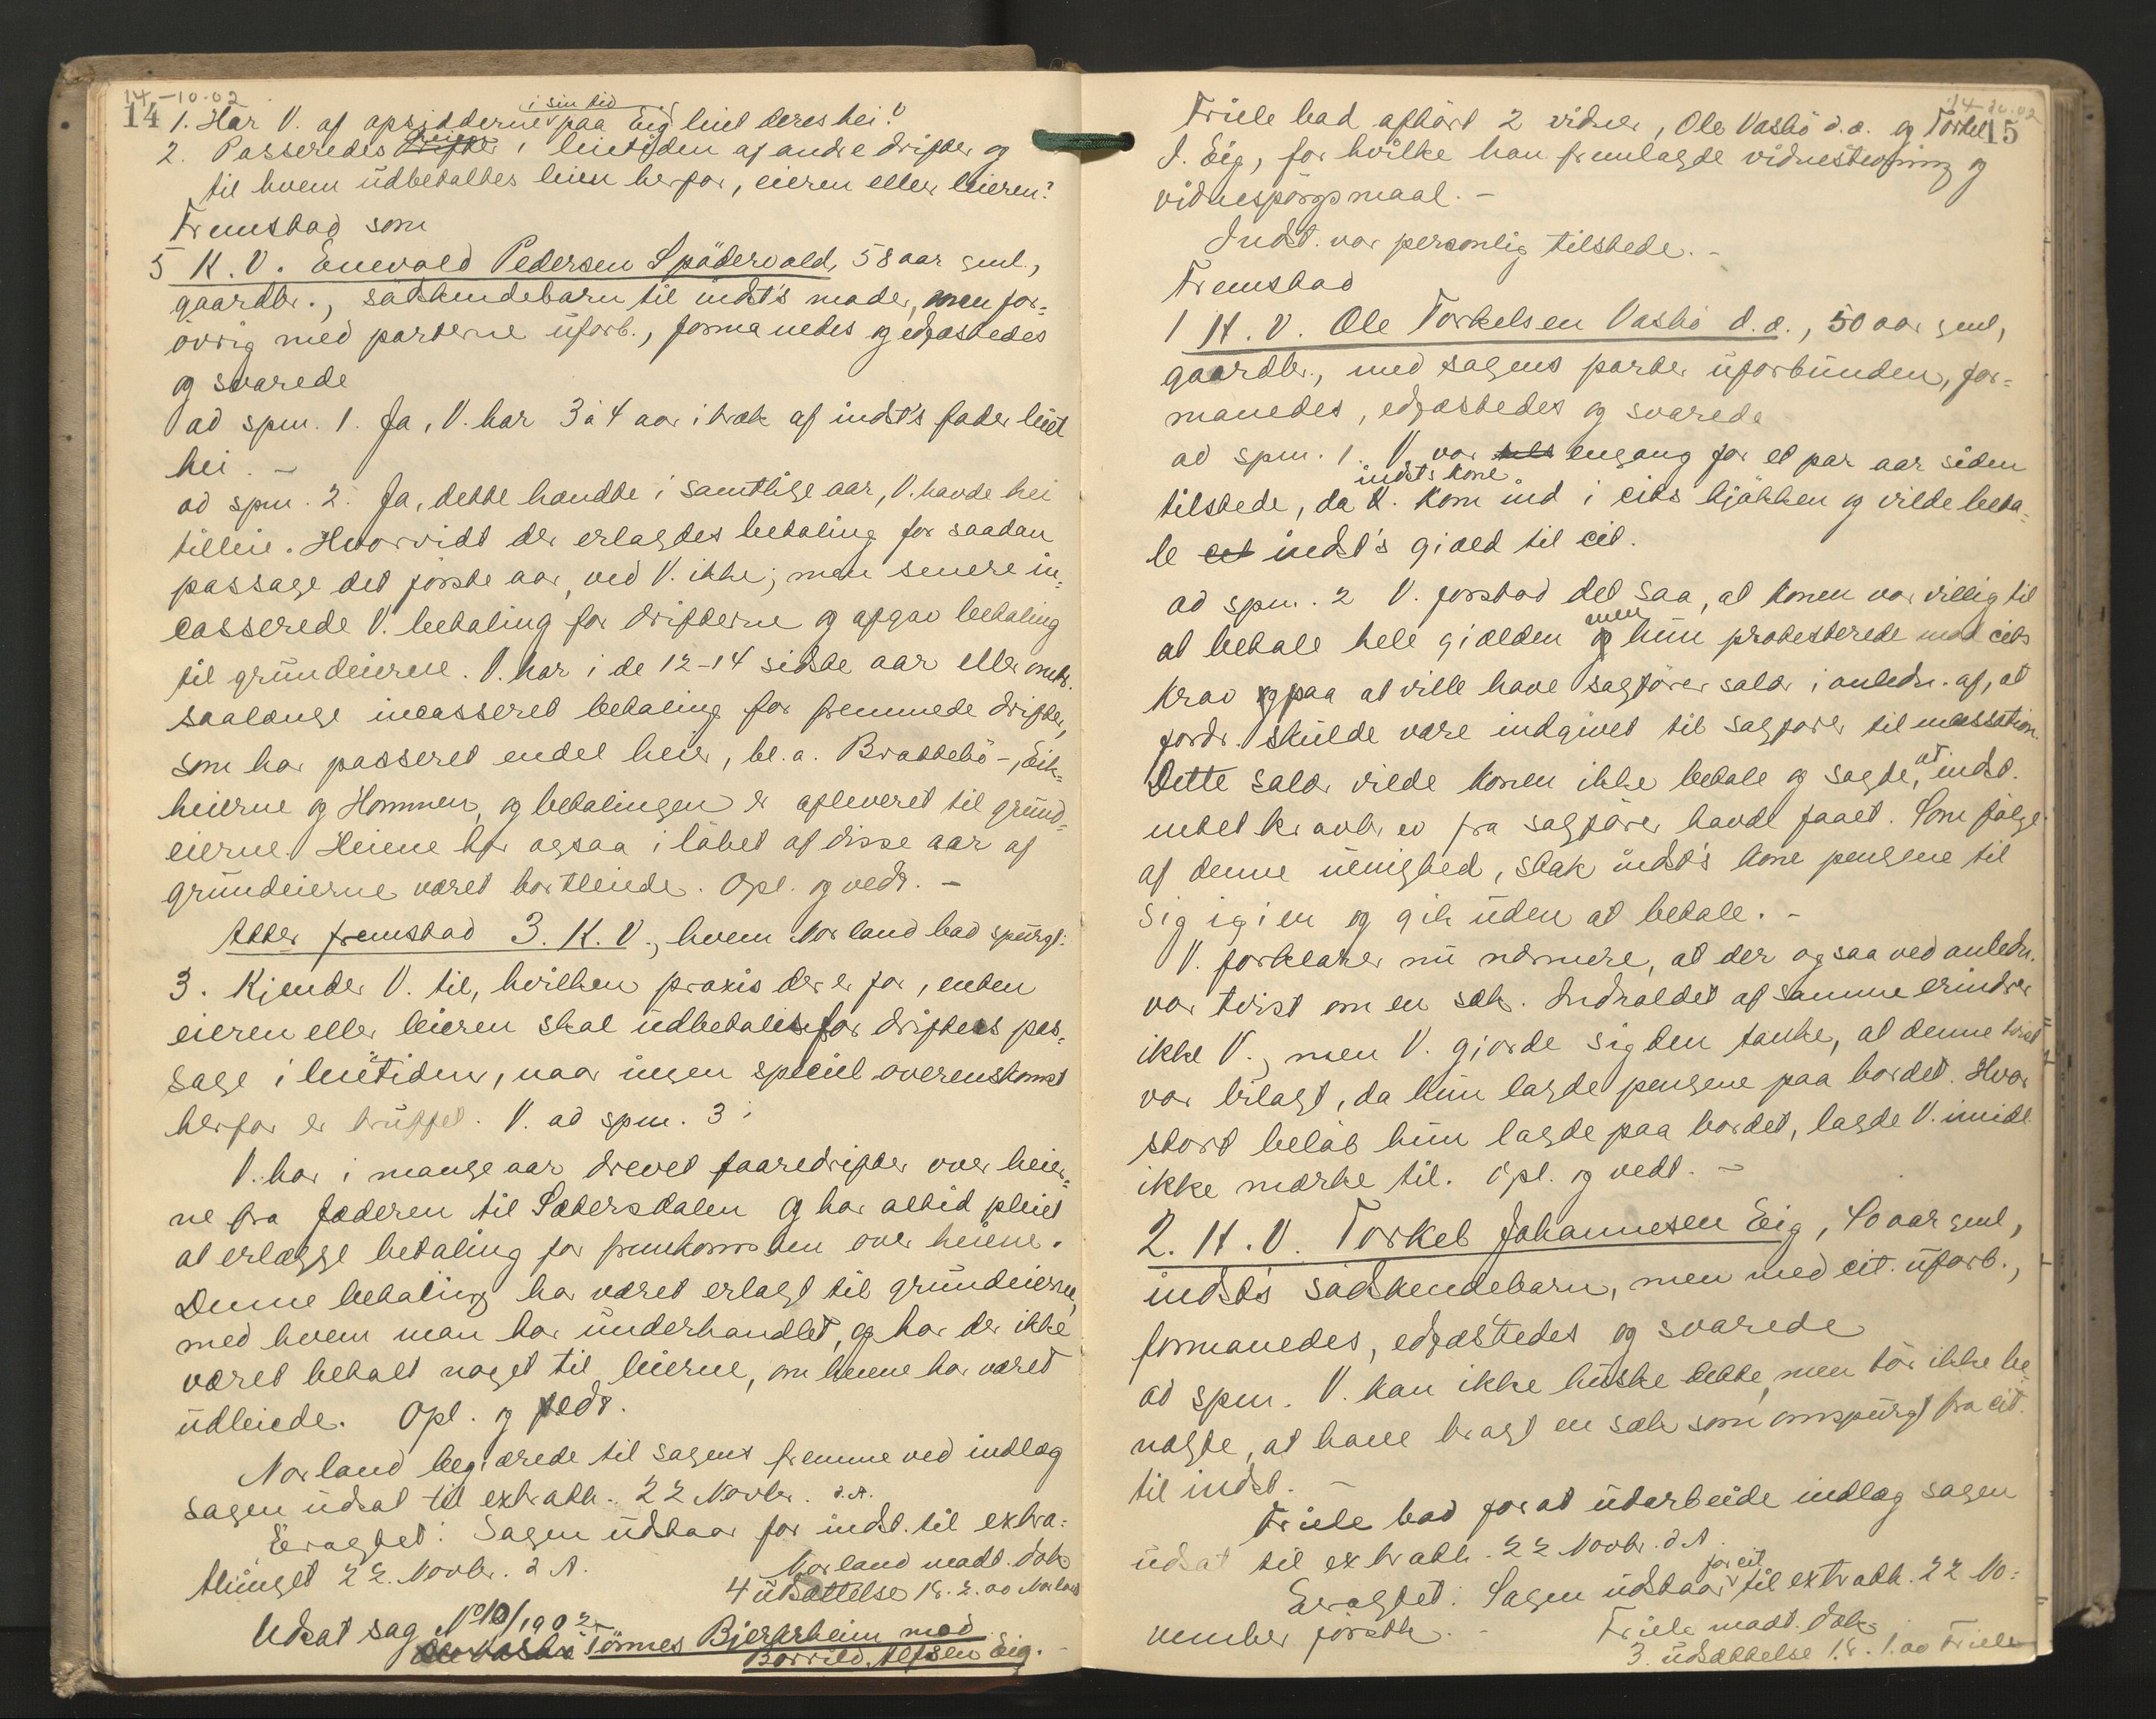 14-10-02
14 1. Har V. af opsidderne i sin tid paa Eig leiet deres hei?
2. Passeredes heien i leietiden af andre drifter og
til hvem udbetaltes leien herfor, eieren eller leieren?
Fremstod som
5 K. V. Enevald Pedersen Spødervold, 58 aar gml.,
gaardbr., sødskendebarn til indst's moder, men for-
øvrig med parterne uforb., formanedes og edfæstedes
og svarede
ad spm. 1. Ja, V. har 3 à 4 aar i træk af indst's fader leiet
hei. -
ad spm. 2. Ja, dette hændte i samtlige aar, V. havde hei
tilleie. Hvorvidt der erlagdes betaling for saadan
passage det første aar, ved V. ikke; men senere in-
casserede V. betaling for drifterne og afgav betaling
til grundeierne. V. har i de 12-14 sidste aar eller omtr.
saalænge incasseret betaling for fremmede drifter,
som har passeret endel heier, bl.a. Brattebø-, Eik-
heierne og Hommen, og betalingen er afleveret til grund-
eierne. Heiene har ogsaa i løbet af disse aar af
grundeierne været bortleiede. Opl. og vedt. -
Atter fremstod 3. K. V., hvem Norland bad spurgt:
3. Kjender V. til, hvilken praxis der er for, enten
eieren eller leieren skal udbetales for drifters pas-
sage i leietiden, naar ingen speciel overenskomst
herfor er truffet. V. ad spm. 3:
V. har i mange aar drevet faaredrifter over heier-
ne fra Jæderen til Sætersdalen og har altid pleiet
at erlægge betaling for fremkomsten over heiene.
Denne betaling har været erlagt til grundeierne,
med hvem man har underhandlet, og har der ikke
været betalt noget til leierne, om heiene har været
udleiede. Opl. og vedt.
Norland begjærede til sagens fremme ved indlæg
sagen udsat til extrath. 22 Novbr. d.A.
Eragtet: Sagen udstaar for indst. til extra-
thinget 22. Novbr. d A.
Norland modt. dok
4 udsættelse 18. 2. oo Norland
Udsat sag No 10/1902
Tønnes Bjerjrheim mod
Borrild Alfsen Eig. -
14-10-02
15
Friele bad afhørt 2 vidner, Ole Vasbø d.æ. og Torkel
J. Eig, for hvilke han fremlagde vidnestevning og
vidnespørgsmaal. -
Indst. var personlig tilstede. -
Fremstod
1 H. V. Ole Torkelsen Vasbø d.æ., 50 aar gml,
gaardbr., med sagens parter uforbunden, for-
manedes, edfæstedes og svarede
ad spm. 1. V. var engang for et par aar siden
tilstede, da indst's kone kom ind i cits kjøkken og vilde beta-
le indst's gjæld til cit.
ad spm. 2 V. forstod det saa, at konen var villig til
at betale hele gjælden men hun protesterede mod cits
krav paa at ville have sagførersalær i anledn. af, at
fordr. skulde være indgivet til sagfører til incassation.
Dette salær vilde konen ikke betale og sagde, at indst.
intet kravbrev fra sagfører havde faaet. Som følge
af denne uenighed, stak indst's kone pengene til
sig igjen og gik uden at betale. -
V. forklarer nu nærmere, at der ogsaa ved anledn.
var tvist om en sæk. Indholdet af samme erindrer
ikke V., men V. gjorde sig den tanke, at denne tvist
var bilagt, da hun lagde pengene paa bordet. Hvor
stort beløb hun lagde paa bordet, lagde V. imidl.
ikke mærke til. Opl. og vedt. -
2. H. V. Torkel Johannesen Eig, 40 aar gml,
indst's sødskendebarn, men med cit. uforb.,
formanedes, edfæstedes og svarede
ad spm. V. kan ikke huske dette, men tør ikke be-
nægte, at have bragt en sæk som omspurgt fra cit.
til indst. -
Friele bad for at udarbeide indlæg sagen
udsat til extrath. 22 Novbr. d A.
Eragtet: Sagen udstaar for cit til extrath. 22 No-
vember førstk. -
Friele modt. dok
3. udsættelse 18. 1. oo Friele